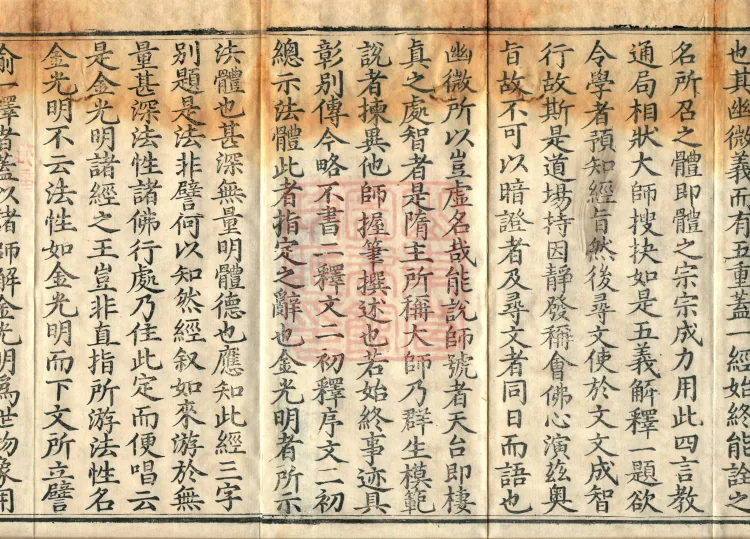 也其幽微義而有五重蓋一經始終能詮之
名所召之體即體之宗宗成力用此四言教
通局相狀大師搜抉如是五義解釋一題欲
令學者預知經旨然後尋文使於文文成智
行故斯是道場持因靜發稱會佛心演茲奧
旨故不可以暗證者及尋文者同日而語也
幽微所以豈虛名哉能說師號者天台即棲
真之處智者是隋主所稱大師乃群生模範
說者揀異他師握筆撰述也若始終事迹具
彰別傳今略不書二釋文二初釋序文二初
總示法體此者指定之辭也金光明者所示
法體也甚深無量明體德也應知此經三字
別題是法非譬何以知然經叙如來游於無
量甚深法性諸佛行處乃住此定而便唱云
是金光明諸經之王豈非直指所游法性名
金光明不云法性如金光明而下文所立譬
喻一釋者蓋以諸師解金光明爲世物象用